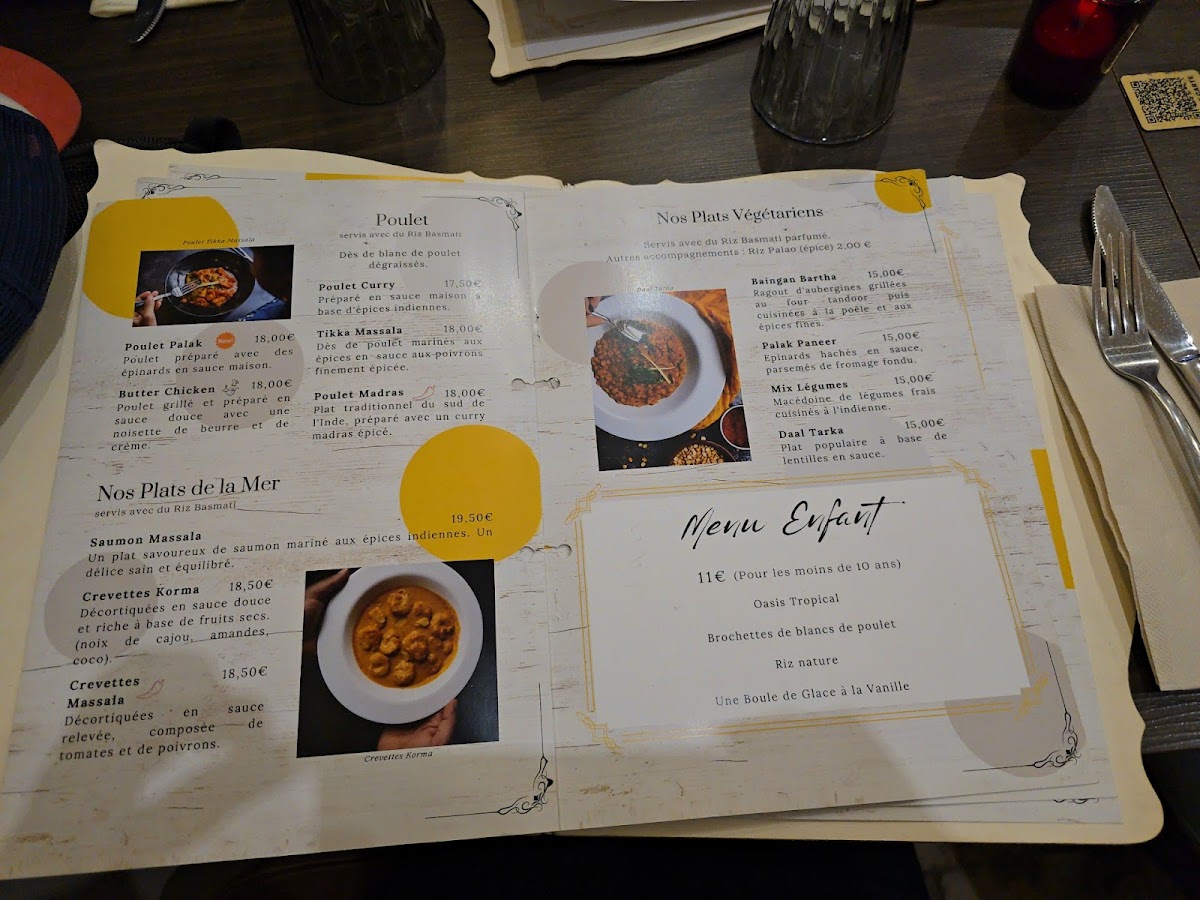 Poulet
servis avec du Riz Basmati
Dès de blanc de poulet
dégraissés.
Poulet Tikka Massala
Poulet Palak New! 18,00€
Poulet préparé avec des
épinards en sauce maison.
Butter Chicken 18,00€
Poulet grillé et préparé en
sauce douce avec une
noisette de beurre et de
crème.
Poulet Curry 17,50€
Préparé en sauce maison à
base d'épices indiennes.
Tikka Massala 18,00€
Dès de poulet marinés aux
épices en sauce aux poivrons
finement épicée.
Poulet Madras 18,00€
Plat traditionnel du sud de
l'Inde, préparé avec un curry
madras épicé.
Nos Plats de la Mer
servis avec du Riz Basmati
Saumon Massala 19,50€
Un plat savoureux de saumon mariné aux épices indiennes. Un
délice sain et équilibré.
Crevettes Korma 18,50€
Décortiquées en sauce douce
et riche à base de fruits secs.
(noix de cajou, amandes,
coco).
Crevettes 18,50€
Massala
Décortiquées en sauce
relevée, composée de
tomates et de poivrons.
Crevettes Korma
Nos Plats Végétariens
Servis avec du Riz Basmati parfumé.
Autres accompagnements : Riz Palao (épice) 2,00 €
Daal Tarka
Baingan Bartha 15,00€
Ragout d'aubergines grillées
au four tandoor puis
cuisinées à la poêle et aux
épices fines.
Palak Paneer 15,00€
Epinards hachés en sauce,
parsemés de fromage fondu.
Mix Légumes 15,00€
Macédoine de légumes frais
cuisinés à l'indienne.
Daal Tarka 15,00€
Plat populaire à base de
lentilles en sauce.
Menu Enfant
11€ (Pour les moins de 10 ans)
Oasis Tropical
Brochettes de blancs de poulet
Riz nature
Une Boule de Glace à la Vanille